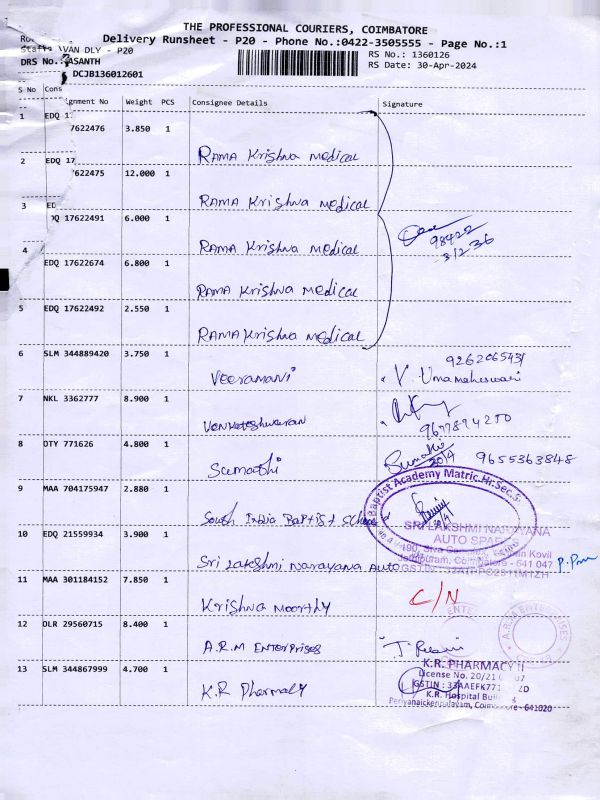 THE PROFESSIONAL COURIERS, COIMBATORE
Delivery Runsheet - P20 - Phone No.:0422-3505555 - Page No.:1
VAN DLY - P20
RS No.: 1360126
DRS No.: ASANTH
RS Date: 30-Apr-2024
DCJB136012601
S No Cons
gnment No Weight PCS Consignee Details Signature
1 EDQ 1
7622476 3.850 1
RAMA Krishna Medical
2 EDQ 17
622475 12.000 1
RAMA Krishna Medical
3 ED
Q 17622491 6.000 1
RAMA Krishna Medical
98422
31236
4
EDQ 17622674 6.800 1
RAMA Krishna Medical
5 EDQ 17622492 2.550 1
RAMA Krishna Medical
6 SLM 344889420 3.750 1
Veeramani
V. Umamaheswari
7 NKL 3362777 8.900 1
Venkateshwaran
9677874250
8 OTY 771626 4.800 1
Sumathi
Sumathi
30/4
9655363848
9 MAA 704175947 2.880 1
South India Baptist School
Baptist Academy Matric.Hr.Sec.S
30/4
10 EDQ 21559934 3.900 1
Sri Lakshmi Narayana Auto
SRI LAKSHMI NARAYANA
AUTO SPARES
Coimbatore - 641 047
11 MAA 301184152 7.850 1
Krishna Moorthy
C/N
12 OLR 29560715 8.400 1
A.R.M Enterprises
A.R.M ENTERPRISES
13 SLM 344867999 4.700 1
K.R Pharmacy
K.R. PHARMACY II
License No. 20/21
GSTIN : 33AAEFK771 ZD
K.R. Hospital Buil
Periyanaickenpalayam, Coimbatore - 641020